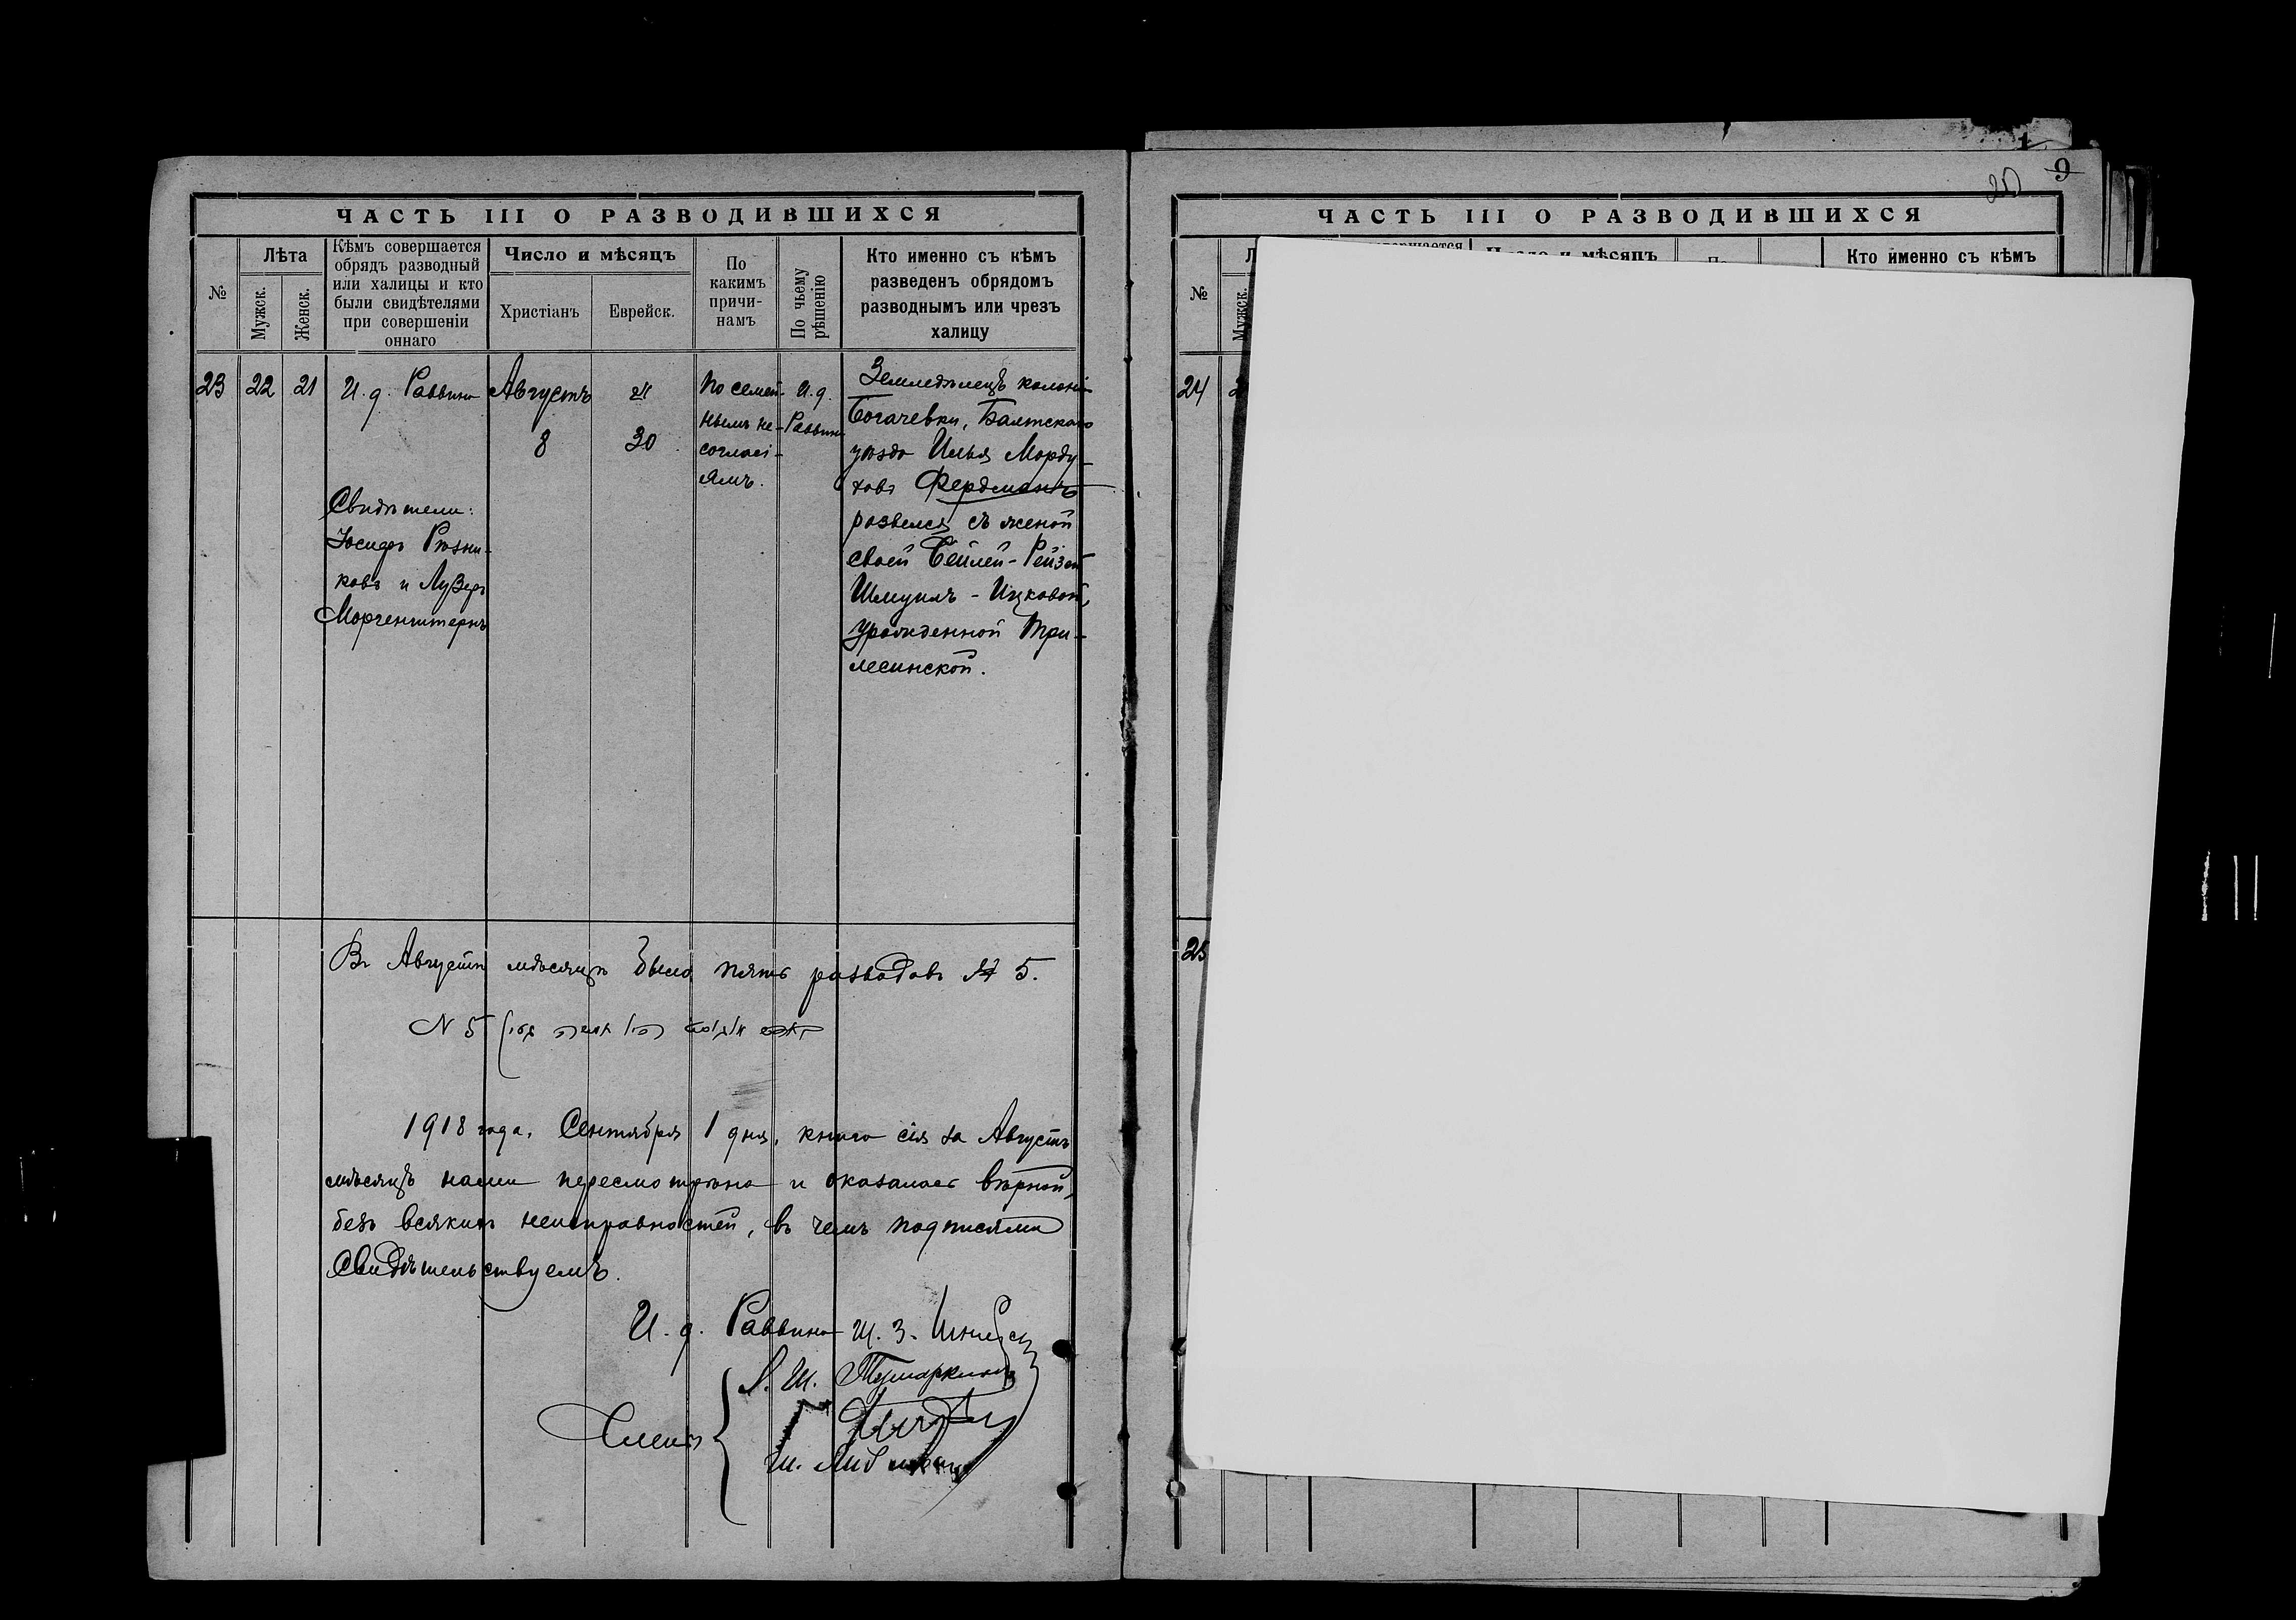 ЧАСТЬ III О РАЗВОДИВШИХСЯ
№
Лѣта
Мужск.
Женск.
Кѣмъ совершается
обрядъ разводный
или халицы и кто
были свидѣтелями
при совершеніи
оннаго
Число и мѣсяцъ
Христіанъ
Еврейск.
По
какимъ
причи-
намъ
По чьему
рѣшенію
Кто именно съ кѣмъ
разведенъ обрядомъ
разводнымъ или чрезъ
халицу
23
22
21
И. д. Раввина
Свидѣтели:
Іосифъ Рѣзни-
ковъ и Лузеръ
Моргенштернъ
Августъ
8
30
По семей-
нымъ не-
согласі-
ямъ.
И. д.
Раввина
Земледѣлецъ колоніи
Богачевки, Балтскаго
уѣзда Илья Морду-
ховъ Фердманъ
развелся съ женой
своей Бейлей-Рейзей
Шмуилъ-Ицковой,
урожденной Три-
лесинской.
Въ Августѣ мѣсяцѣ было пять разводовъ № 5.
N 5
1918 года, Сентября 1 дня, книга сія за Августъ
мѣсяцъ нами пересмотрѣна и оказалась вѣрной,
безъ всякихъ неисправностей, въ чемъ подписями
свидѣтельствуемъ.
И. д. Раввина Ш. З.
Члены
Л. Ш. Тумаркинъ
Ш.
9
ЧАСТЬ III О РАЗВОДИВШИХСЯ
№
Мужск.
мѣсяцъ
Кто именно съ кѣмъ
24
25